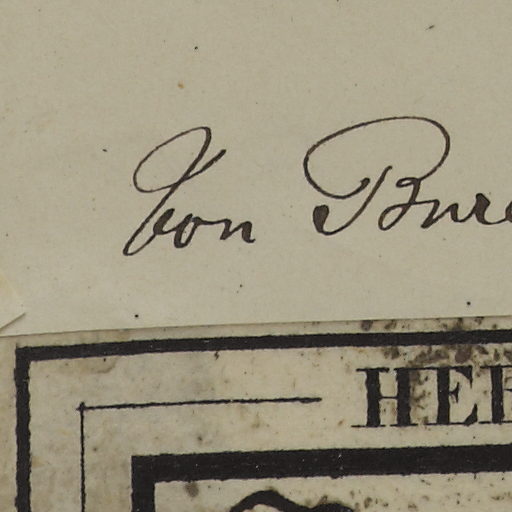 Von Bure
HER